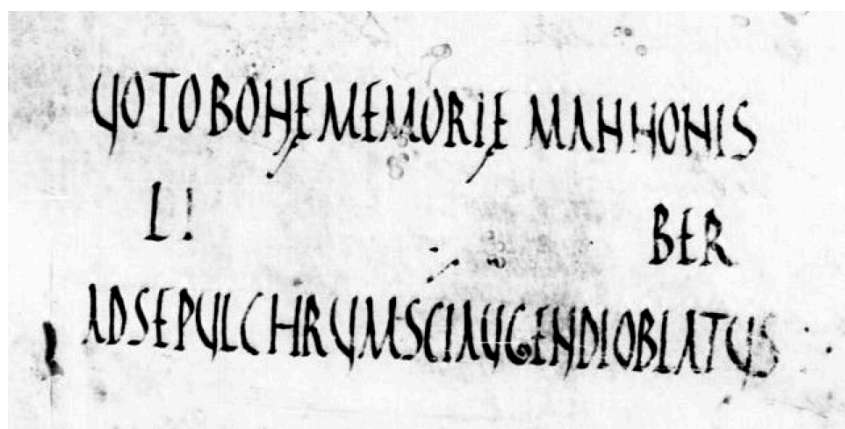 VOTO BONE MEMORIE MANNONIS
LI BER
AD SEPULCHRUM SCI AUGENDI OBLATUS